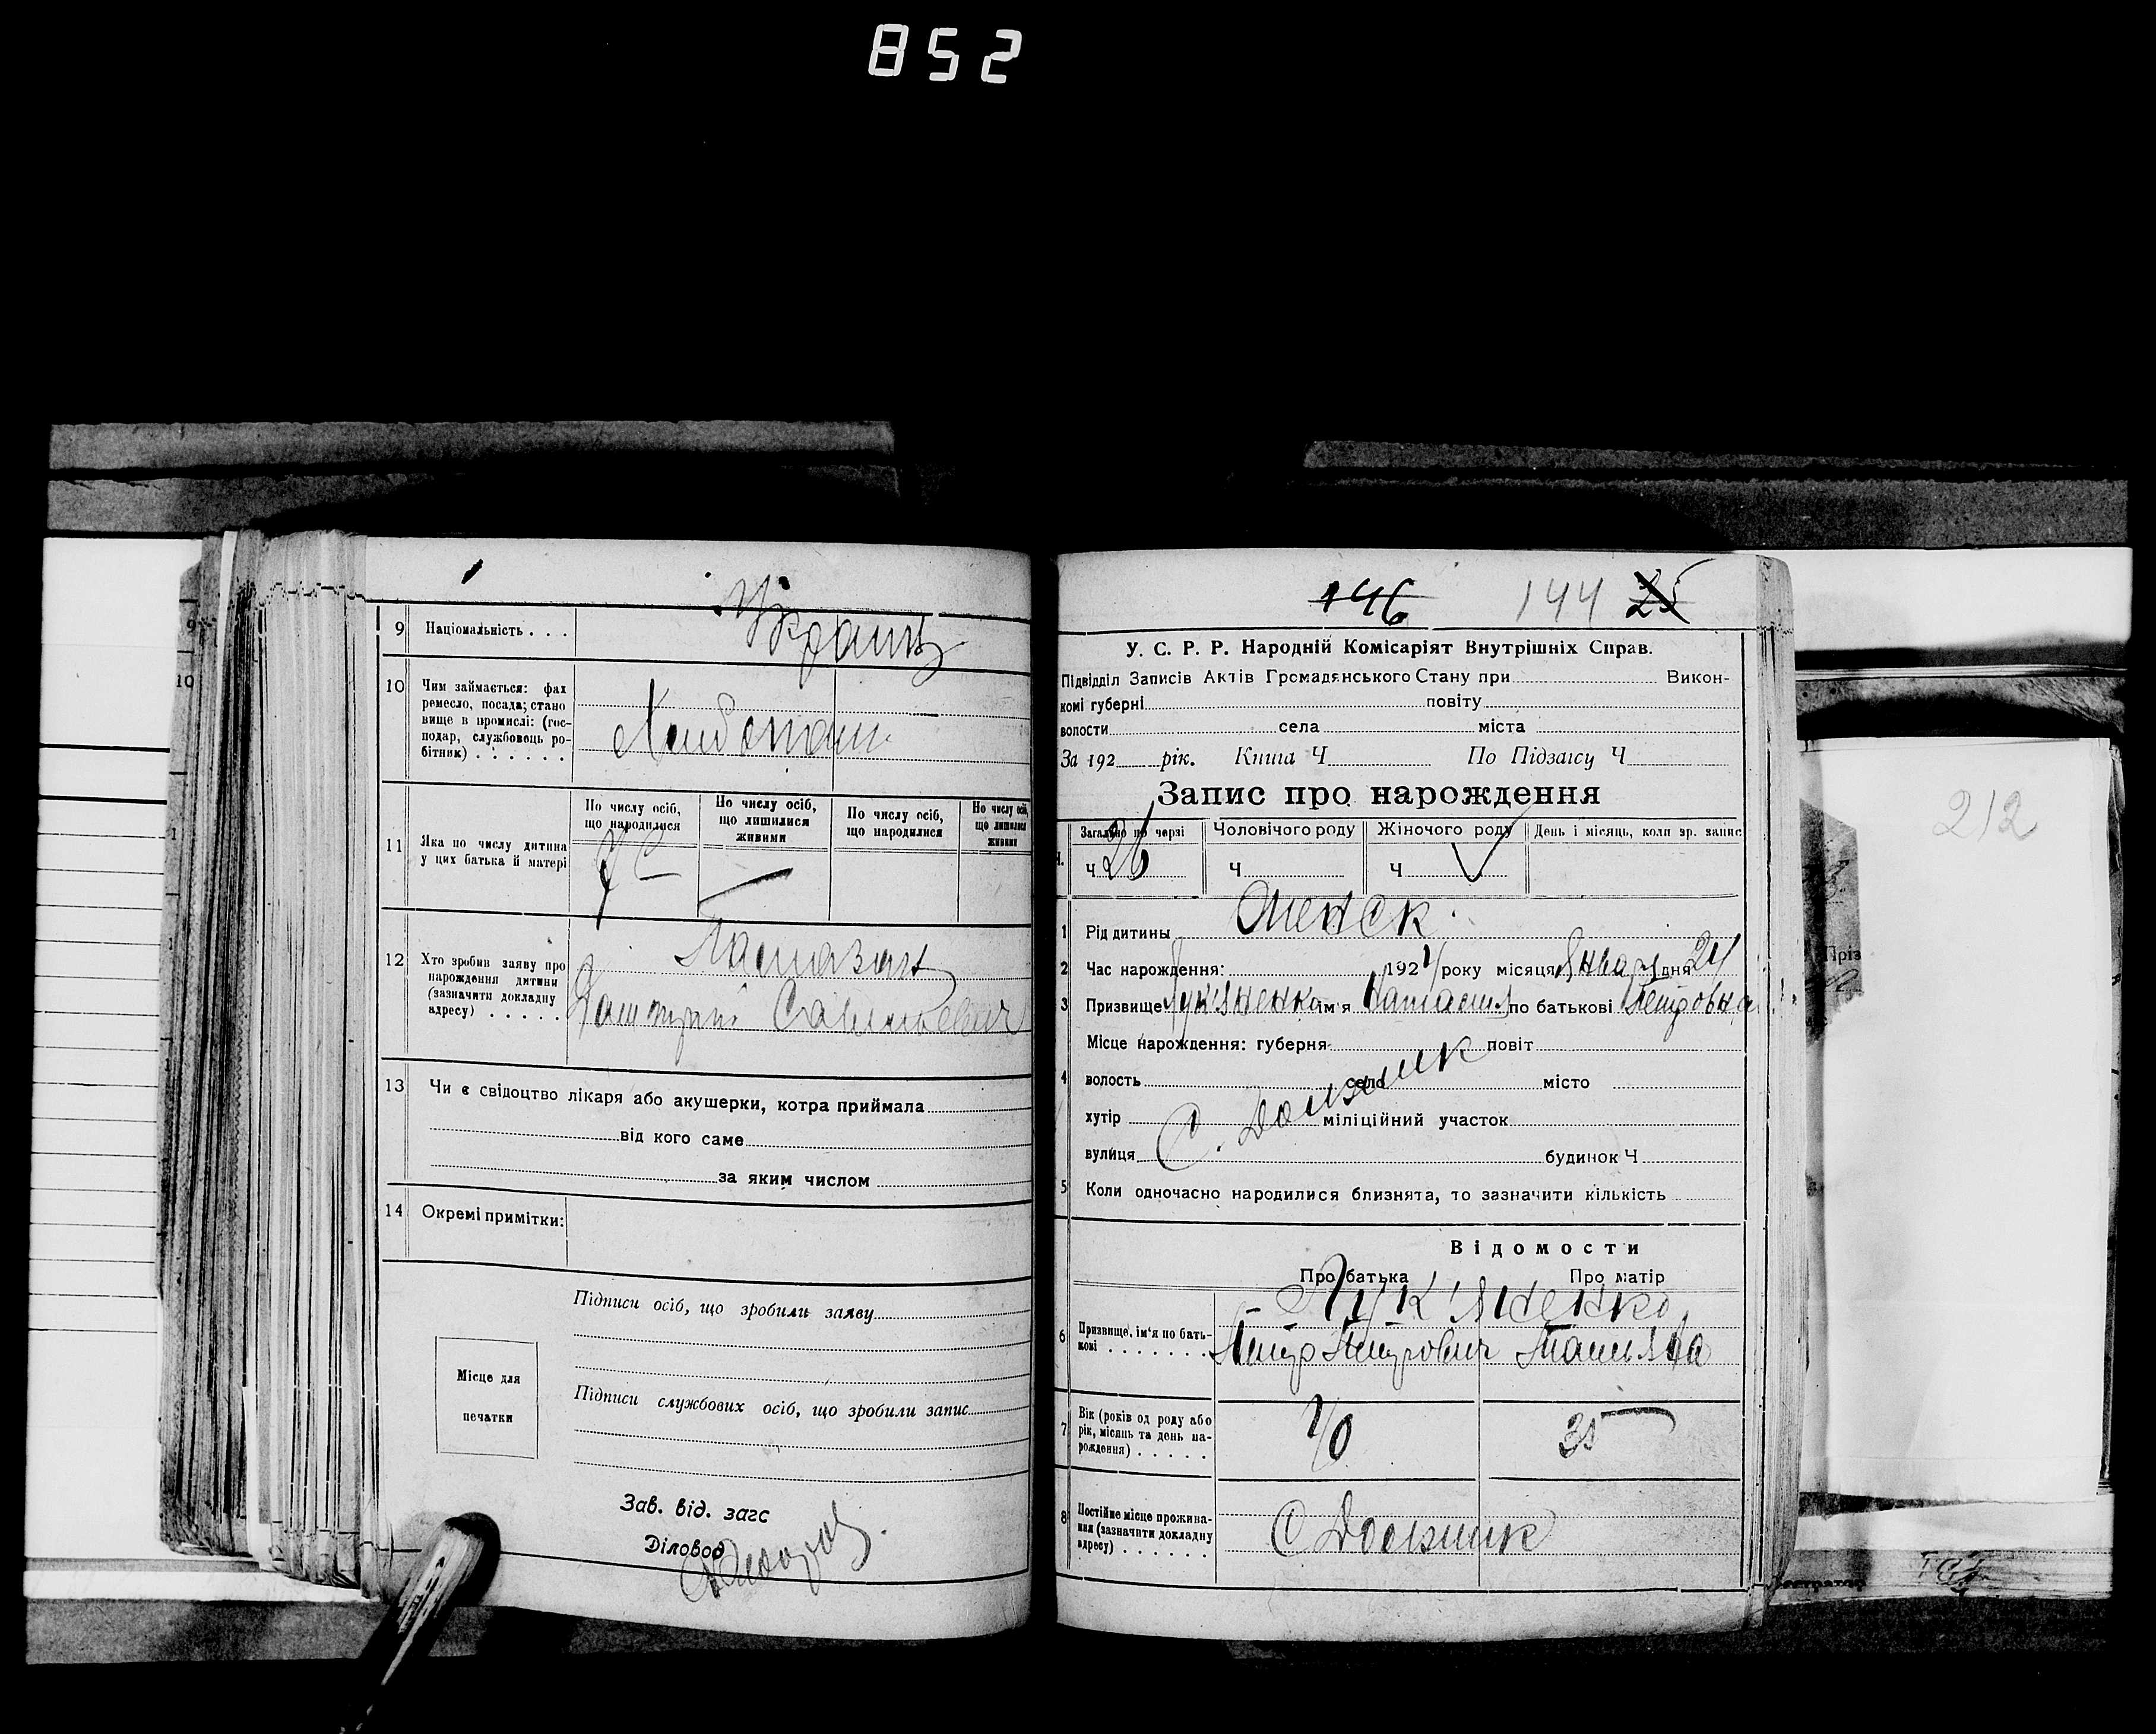 852
9 Національність . . . Украин
10 Чим займається: фах
ремесло, посада; стано
вище в промислі: (гос-
подар, службовець ро-
бітник) . . . . . .
Хлибопаш
По числу осіб,
що народилися
По числу осіб,
що лишилися
живими
По числу осіб,
що народилися
По числу осіб,
що лишилися
живими
11 Яка по числу дитина
у цих батька й матері
12 Хто зробив заяву про
нарождення дитини
(зазначити докладну
адресу) . . . . .
13 Чи є свідоцтво лікаря або акушерки, котра приймала
від кого саме
за яким числом
14 Окремі примітки:
Підписи осіб, що зробили заяву
Місце для
печатки
Підписи службових осіб, що зробили запис
Зав. від. загс
Діловод
146 144 25
У. С. Р. Р. Народній Комісаріят Внутрішніх Справ.
Підвідділ Записів Актів Громадянського Стану при Викон-
комі губерні повіту
волости села міста
За 192 рік. Книга Ч По Підзаісу Ч
Запис про нарождення
Загально по черзі Чоловічого роду Жіночого роду День і місяць, коли зр. запис
Ч 26 Ч Ч
1 Рід дитини Женск.
2 Час нарождення: 1924 року місяця Января дня 24
3 Призвище Лук'яненко ім'я Наталия по батькові Петровна
Місце нарождення: губерня повіт
4 волость село місто
хутір міліційний участок
С.
вулиця будинок Ч
5 Коли одночасно народилися близнята, то зазначити кількість
Відомости
Про батька Про матір
Лук'яненко
6 Призвище, ім'я по бать-
кові . . . . . . .
Петро Петрович Татьяна
7 Вік (років од роду або
рік, місяць та день на-
рождення) . . . . .
40 35
8 Постійне місце прожива-
ння (зазначити докладну
адресу) . . . . . .
С
212